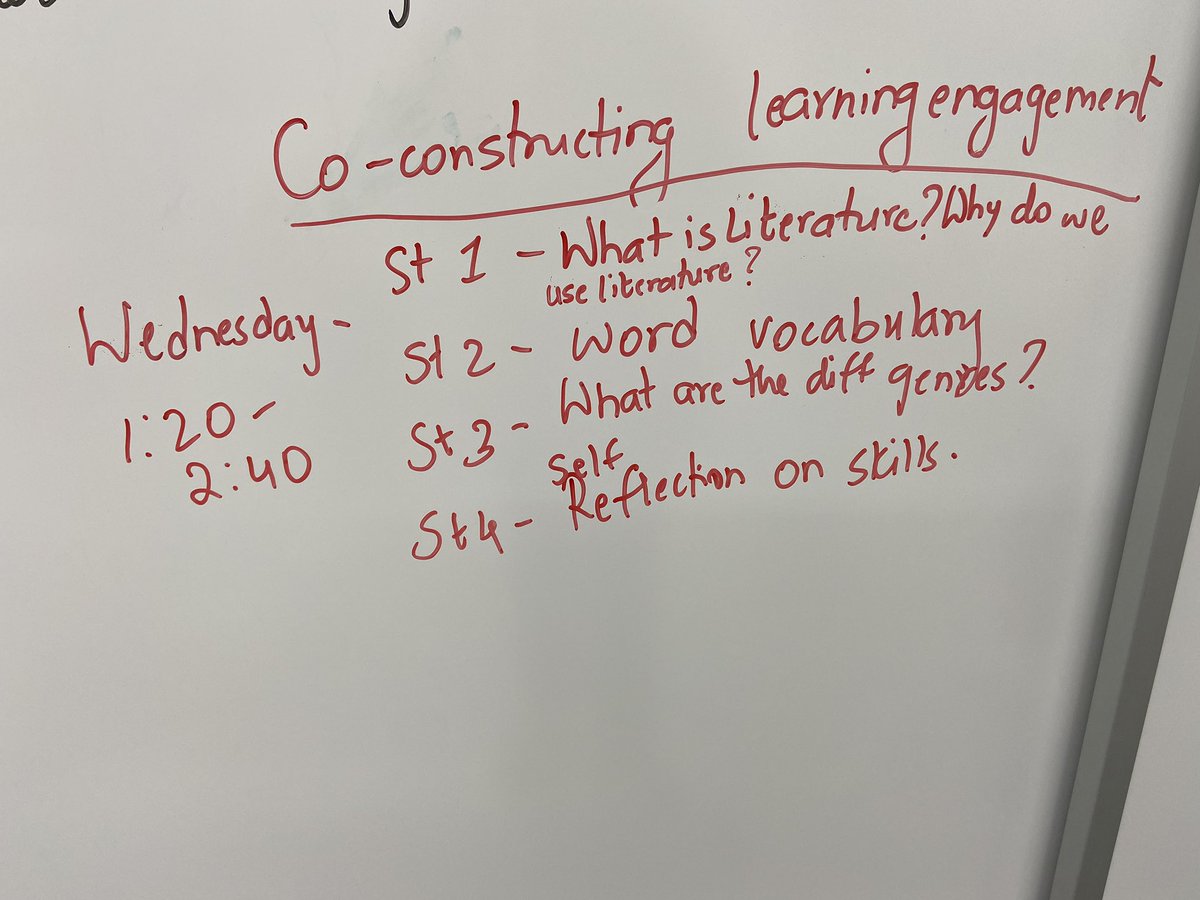 Co-constructing learning engagement
St 1 - What is Literature? Why do we
use literature?
Wednesday -
St 2 - Word vocabulary
1:20 -
2:40
St 3 - What are the diff genres?
St 4 - Self Reflection on skills.